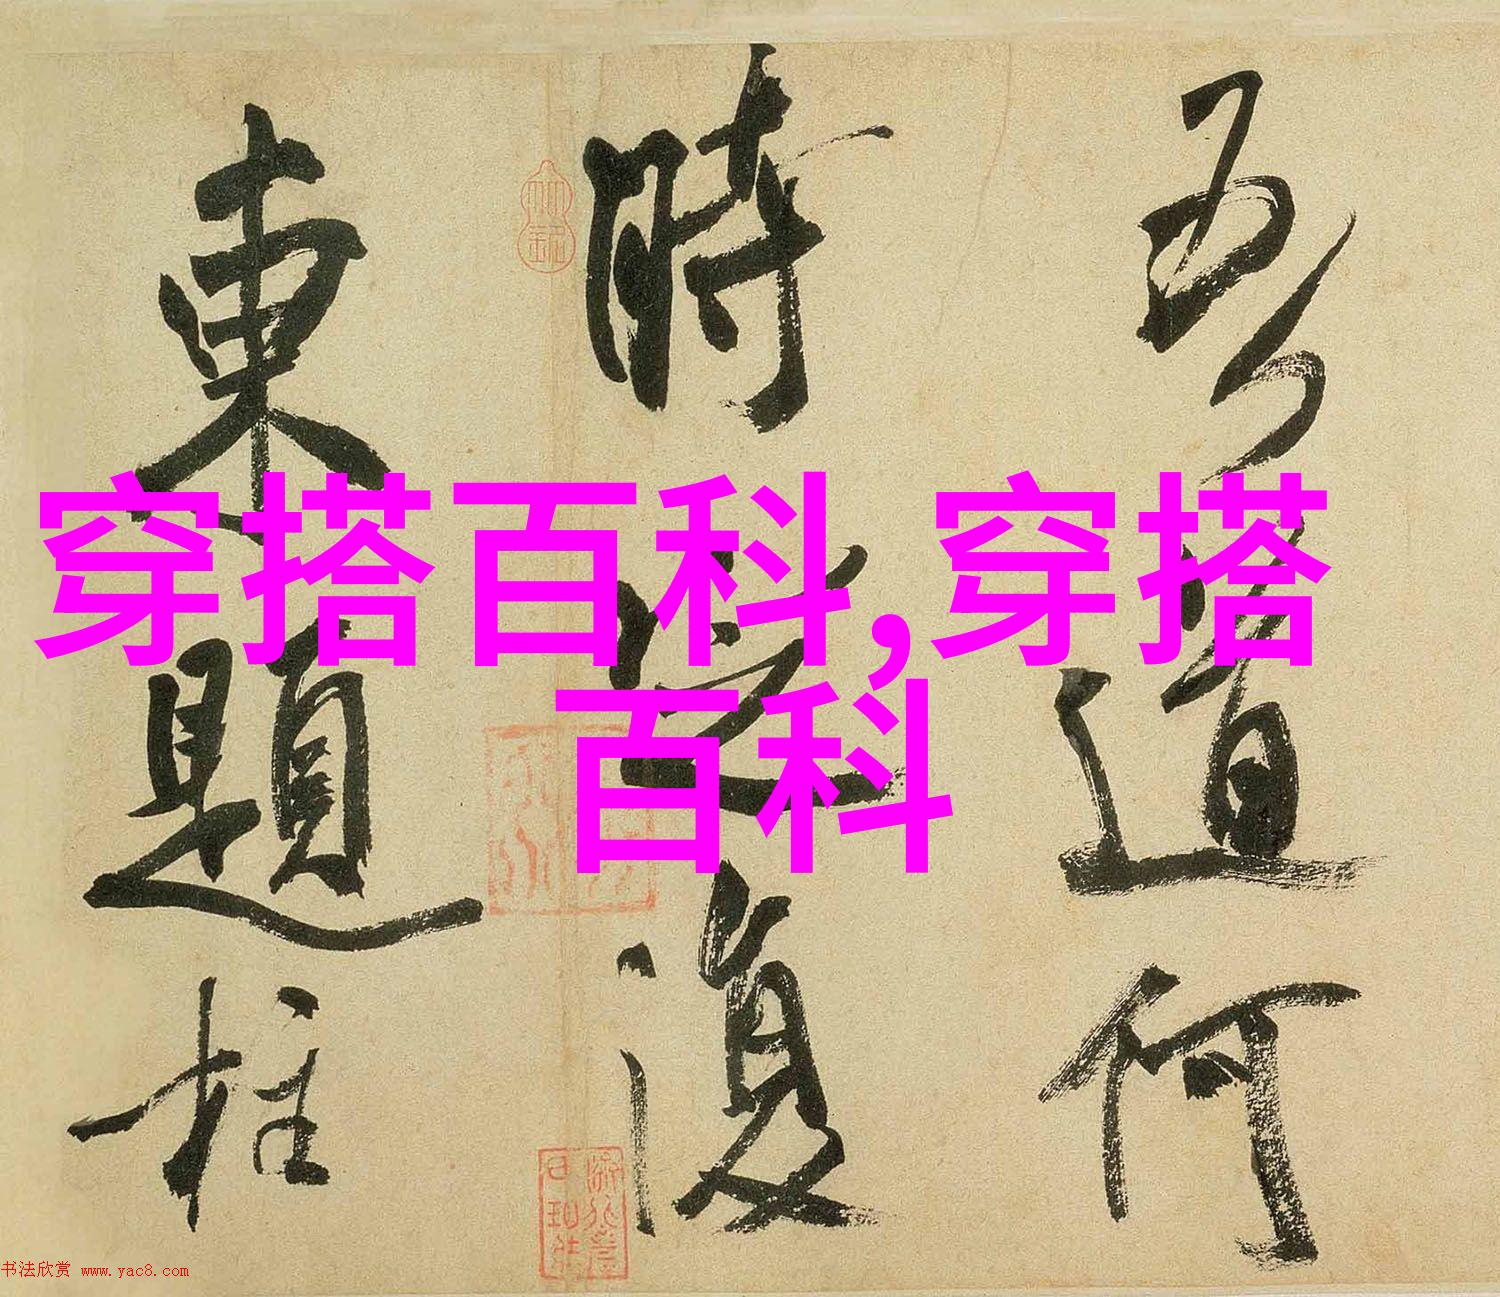 吾道何
時還復
東題柱
穿搭百科,穿搭
百科
书法欣赏 www.yac8.com